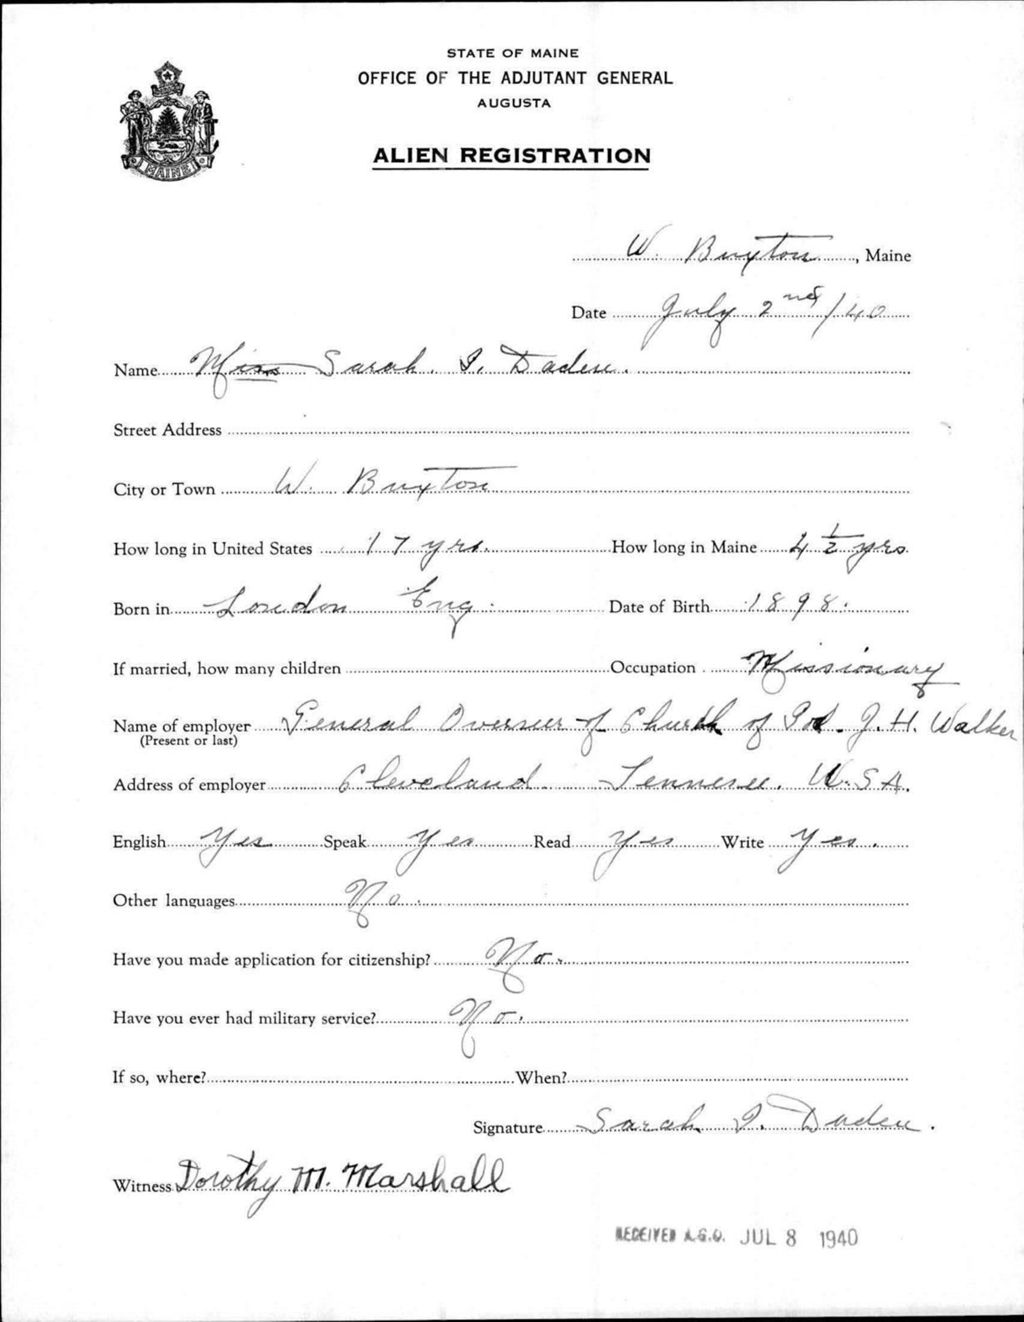 STATE OF MAINE
OFFICE OF THE ADJUTANT GENERAL
AUGUSTA
ALIEN REGISTRATION
MAINE
W. Buxton, Maine
Date July 2nd/40
Name Miss Sarah. I. Daden.
Street Address
City or Town W. Buxton
How long in United States 17 yrs. How long in Maine 4 1/2 yrs.
Born in London Eng. Date of Birth 1898.
If married, how many children Occupation Missionary
Name of employer General Overseer of Church of God. J. H. Walker
(Present or last)
Address of employer Cleveland. Tennesee. U.S.A.
English Yes Speak Yes Read Yes Write Yes.
Other languages No.
Have you made application for citizenship? No.
Have you ever had military service? No.
If so, where? When?
Signature Sarah I. Daden.
Witness Dorothy M. Marshall
RECEIVED A.G.O. JUL 8 1940